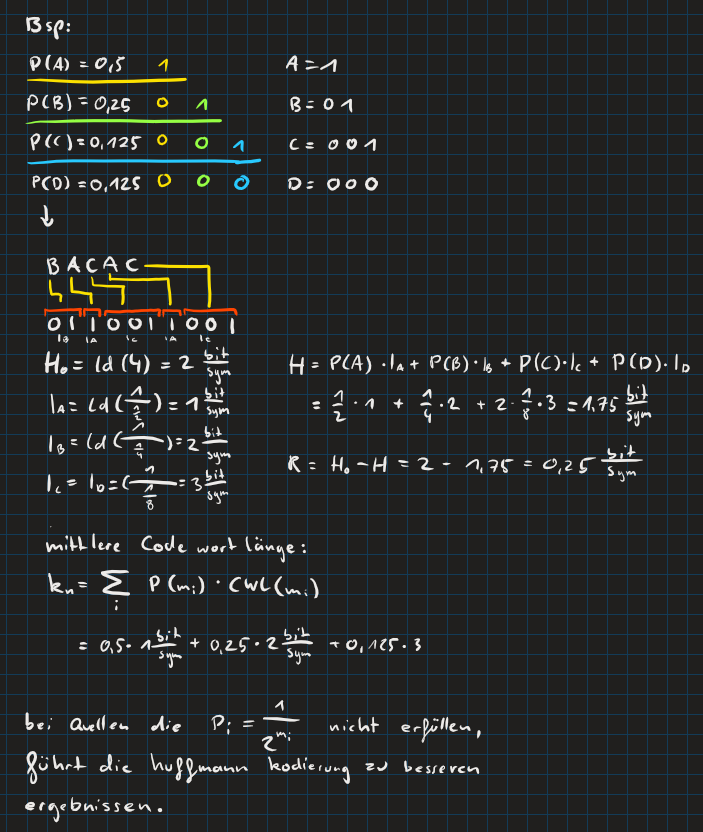 Bsp:
P(A) = 0,5 1 A = 1
P(B) = 0,25 0 1 B = 0 1
P(C) = 0,125 0 0 1 C = 0 0 1
P(D) = 0,125 0 0 0 D = 0 0 0
↓
B A C A C
0 1 1 0 0 1 1 0 0 1
I_B I_A I_C I_A I_C
H₀ = ld (4) = 2 bit/sym H = P(A) · I_A + P(B) · I_B + P(C) · I_C + P(D) · I_D
I_A = ld (1/(1/2)) = 1 bit/sym = 1/2 · 1 + 1/4 · 2 + 2 · 1/8 · 3 = 1,75 bit/sym
I_B = ld (1/(1/4)) = 2 bit/sym
I_C = I_D = (1/(1/8) = 3 bit/sym R = H₀ - H = 2 - 1,75 = 0,25 bit/sym
mittlere Code wort länge:
k_n = Σ_i P(m_i) · CWL(m_i)
= 0,5 · 1 bit/sym + 0,25 · 2 bit/sym + 0,125 · 3
bei Quellen die P_i = 1/2^m_i nicht erfüllen,
führt die huffmann kodierung zu besseren
ergebnissen.